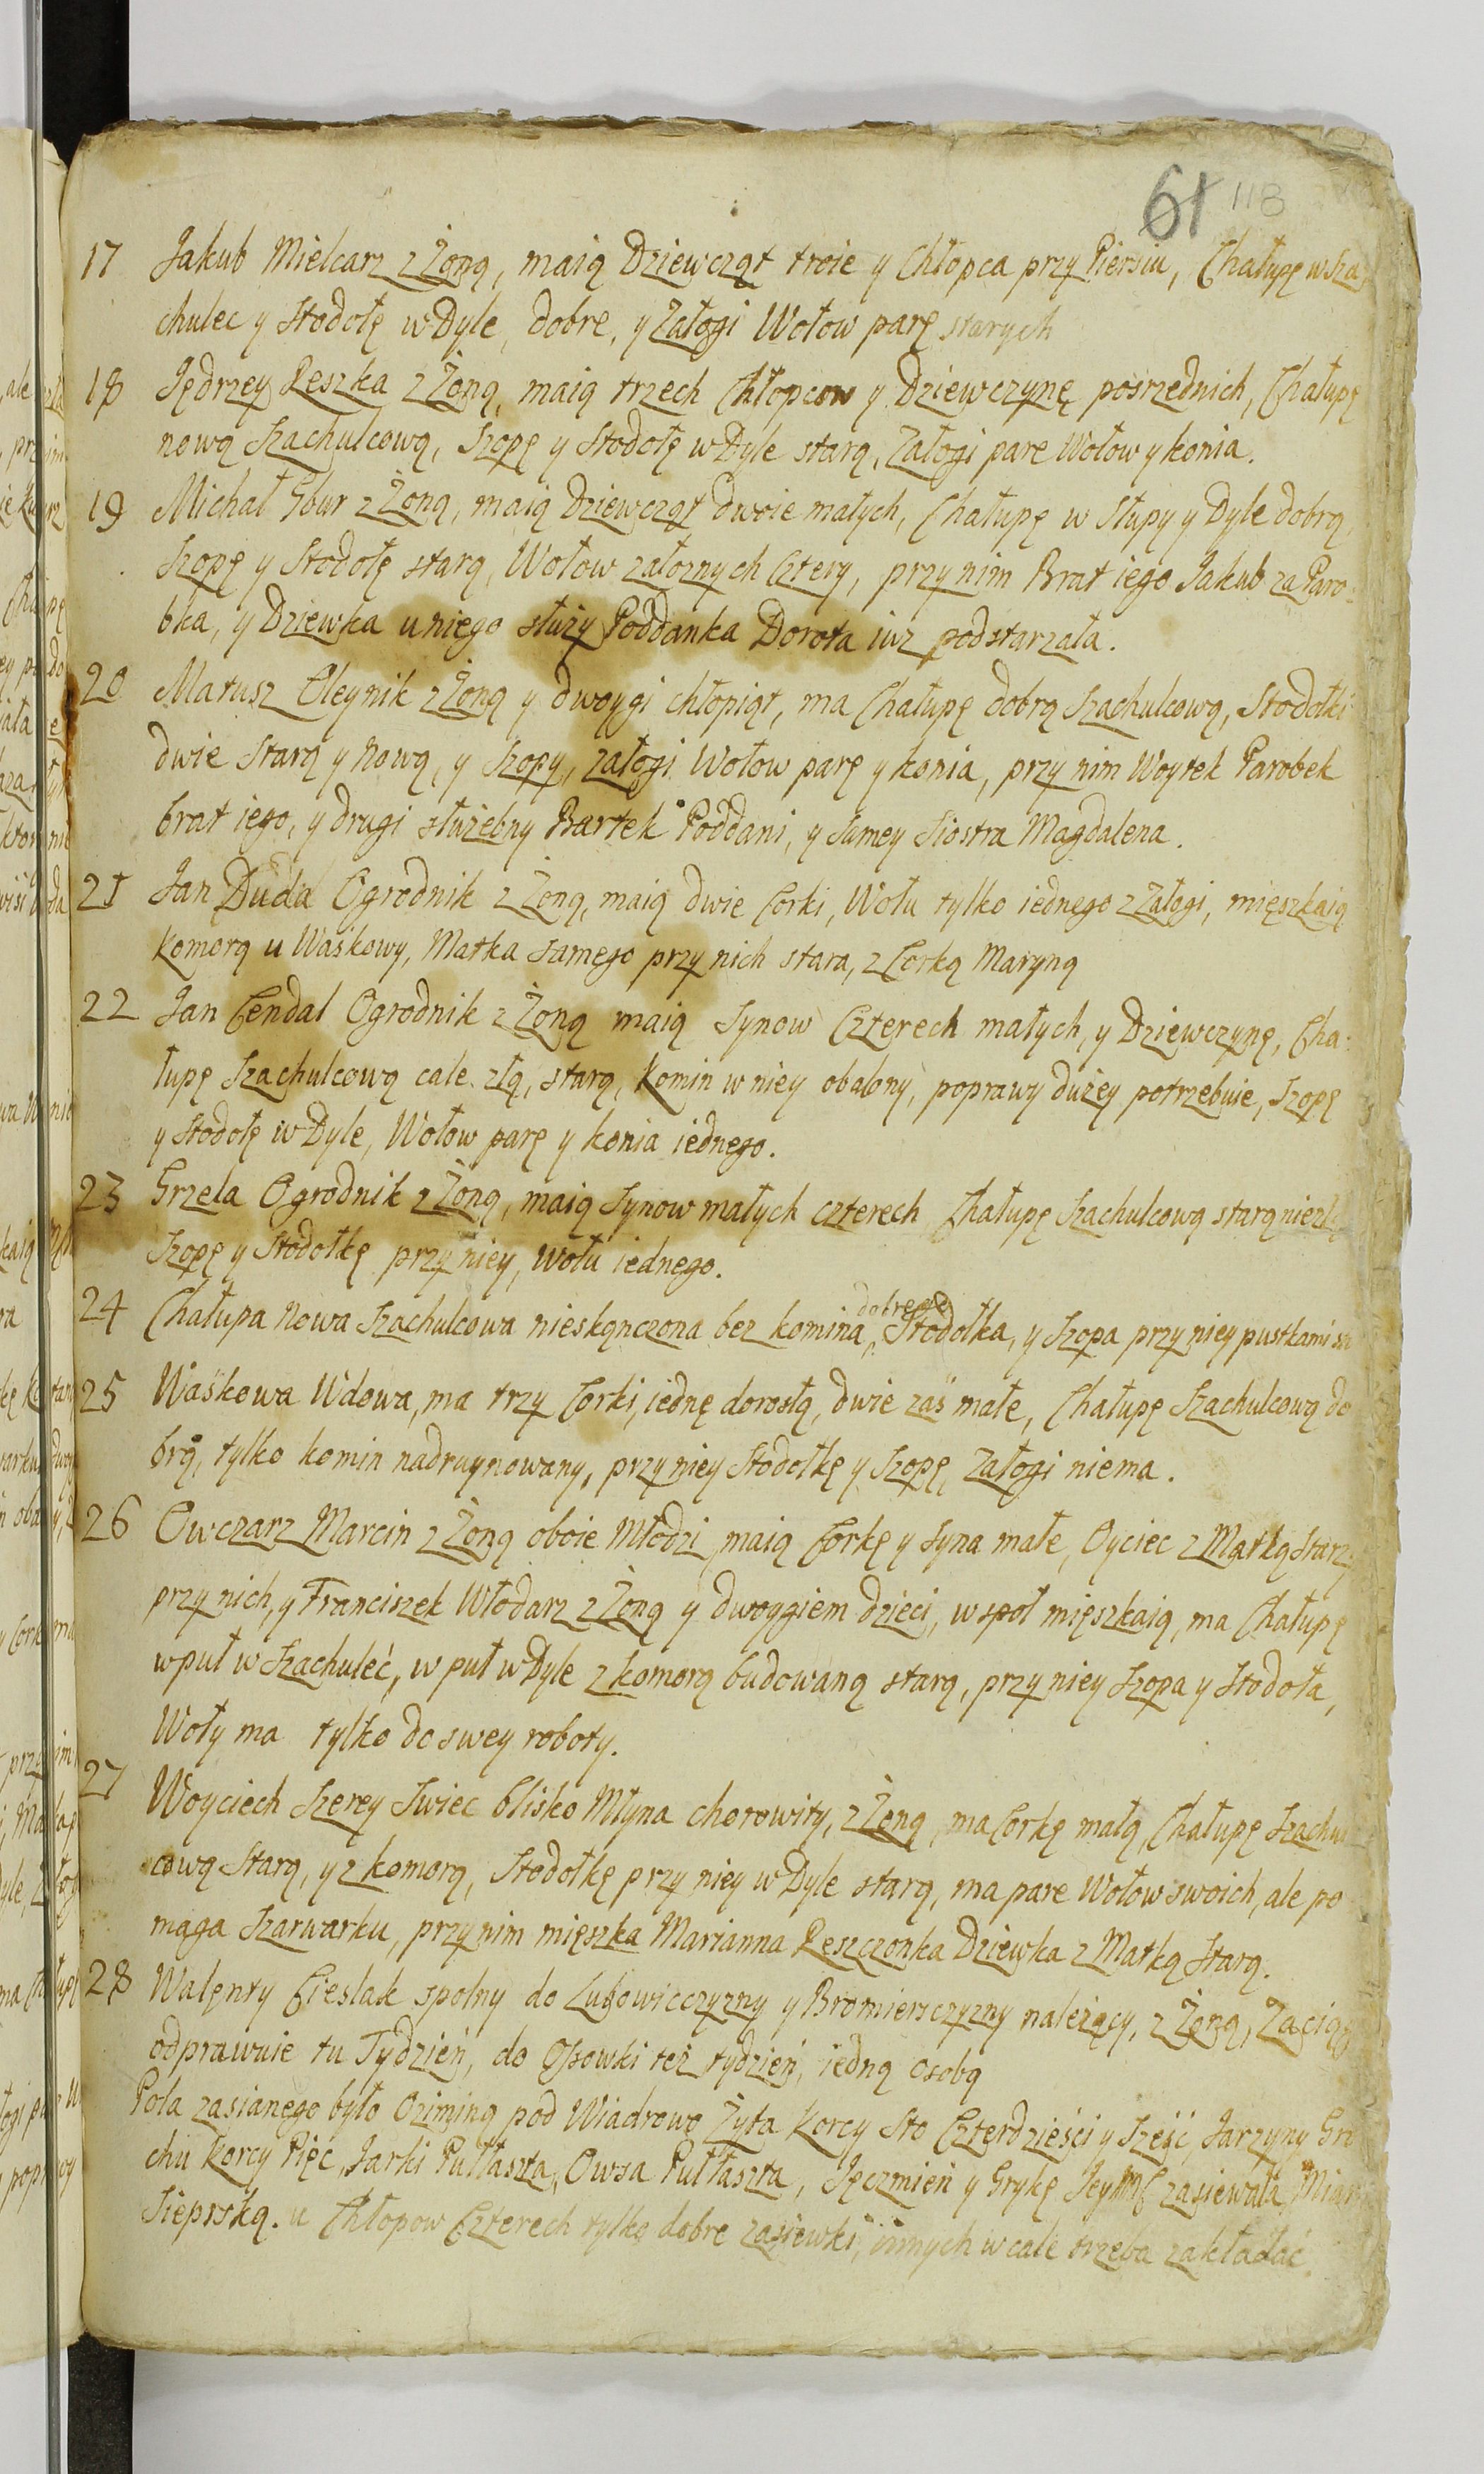 61 118
17 Jakub Mielcarz z Żoną, maią Dziewcząt troie y Chłopca przy Piersiu, Chałupę w Sza
chulec y Stodołę w Dyle, dobre, y Załogi Wołow parę starych
18 Jędrzey Reszka z Żoną, maią trzech Chłopcow y Dziewczynę posrzednich, Chałupę
nową Szachulcową, Szopę y Stodołę w Dyle starą, Załogi pare Wołow y konia.
19 Michał Gbur z Żoną, maią Dziewcząt dwoie małych, Chałupę w Słupy y Dyle dobrą,
Szopę y Stodołę starą, Wołow załoznych Cztery, przy nim Brat iego Jakub za Paro:
bka, y Dziewka u niego służy Poddanka Dorota iuz podstarzała.
20 Matusz Oleynik z Żoną y dwoygi chłopiąt, ma Chałupę dobrą Szachulcową, Stodołki
dwie Starą y Nową, y Szopy, załogi Wołow parę y konia, przy nim Woytek Parobek
brat iego, y drugi służebny Bartek Poddani, y Samey Siostra Magdalena.
21 Jan Duda Ogrodnik z Żoną, maią dwie Corki, Wołu tylko iednego z Załogi, mięszkaią
Komorą u Waśkowy, Matka samego przy nich stara, z Corką Maryną
22 Jan Cendal Ogrodnik z Żoną maią Synow Czterech małych, y Dziewczynę, Cha:
łupę Szachulcową cale złą, starą, Komin w niey obalony, poprawy dużey potrzebuie, Szopę
y Stodołę w Dyle, Wołow parę y konia iednego.
23 Grzela Ogrodnik z Żoną, maią Synow małych czterech Chałupę Szachulcową starą niezłą
Szopę y Stodołkę przy niey, Wołu iednego.
24 Chałupa Nowa Szachulcowa nieskączona bez komina, Stodołka, y Szopa przy niey pustkami
25 Waśkowa Wdowa, ma trzy Corki, iednę dorosłą, dwie zaś małe, Chałupę Szachulcową do
brą, tylko komin nadruynowany, przy niey Stodołkę y Szopę, Załogi niema.
26 Owczarz Marcin z Żoną oboie Młodzi, maią Corkę y Syna małe, Oyciec z Matką Starzy
przy nich, y Franciszek Włodarz z Żoną y dwoygiem dzieci, w społ mięszkaią, ma Chałupę
w puł w Szachuleć, w puł w Dyle z komorą budowaną starą, przy niey Szopa y Stodoła,
Woły ma tylko do swey roboty.
27 Woyciech Szerey Swiec blisko Młyna chorowity, z Żoną, ma Corkę małą, Chałupę Szachul
cową Starą, y z komorą, Stodołkę przy niey w Dyle starą, ma pare Wołow swoich, ale po
maga Szarwarku, przy nim mięszka Marianna Reszczonka Dziewka z Matką Starą.
28 Walęnty Cieslak spolny do Lubowiecczyzny y Bromierszczyzny należący, z Żoną, Zaciąg
odprawuie tu Tydzień, do Ossowki też tydzień, iedną osobą
Pola zasianego było Oziminą pod Wiadrowo Żyta Korcy Sto Czterdzieści y Sześć, Jarzyny Gro
chu Korcy Pięc, Jarki Pułtaszta, Owsa Pułtaszta, Jęczmień y Grykę Jeymć zasiewała Miarą
Siepską. u Chłopow Czterech tylko dobre zasiewki, innych w cale trzeba zakładać.